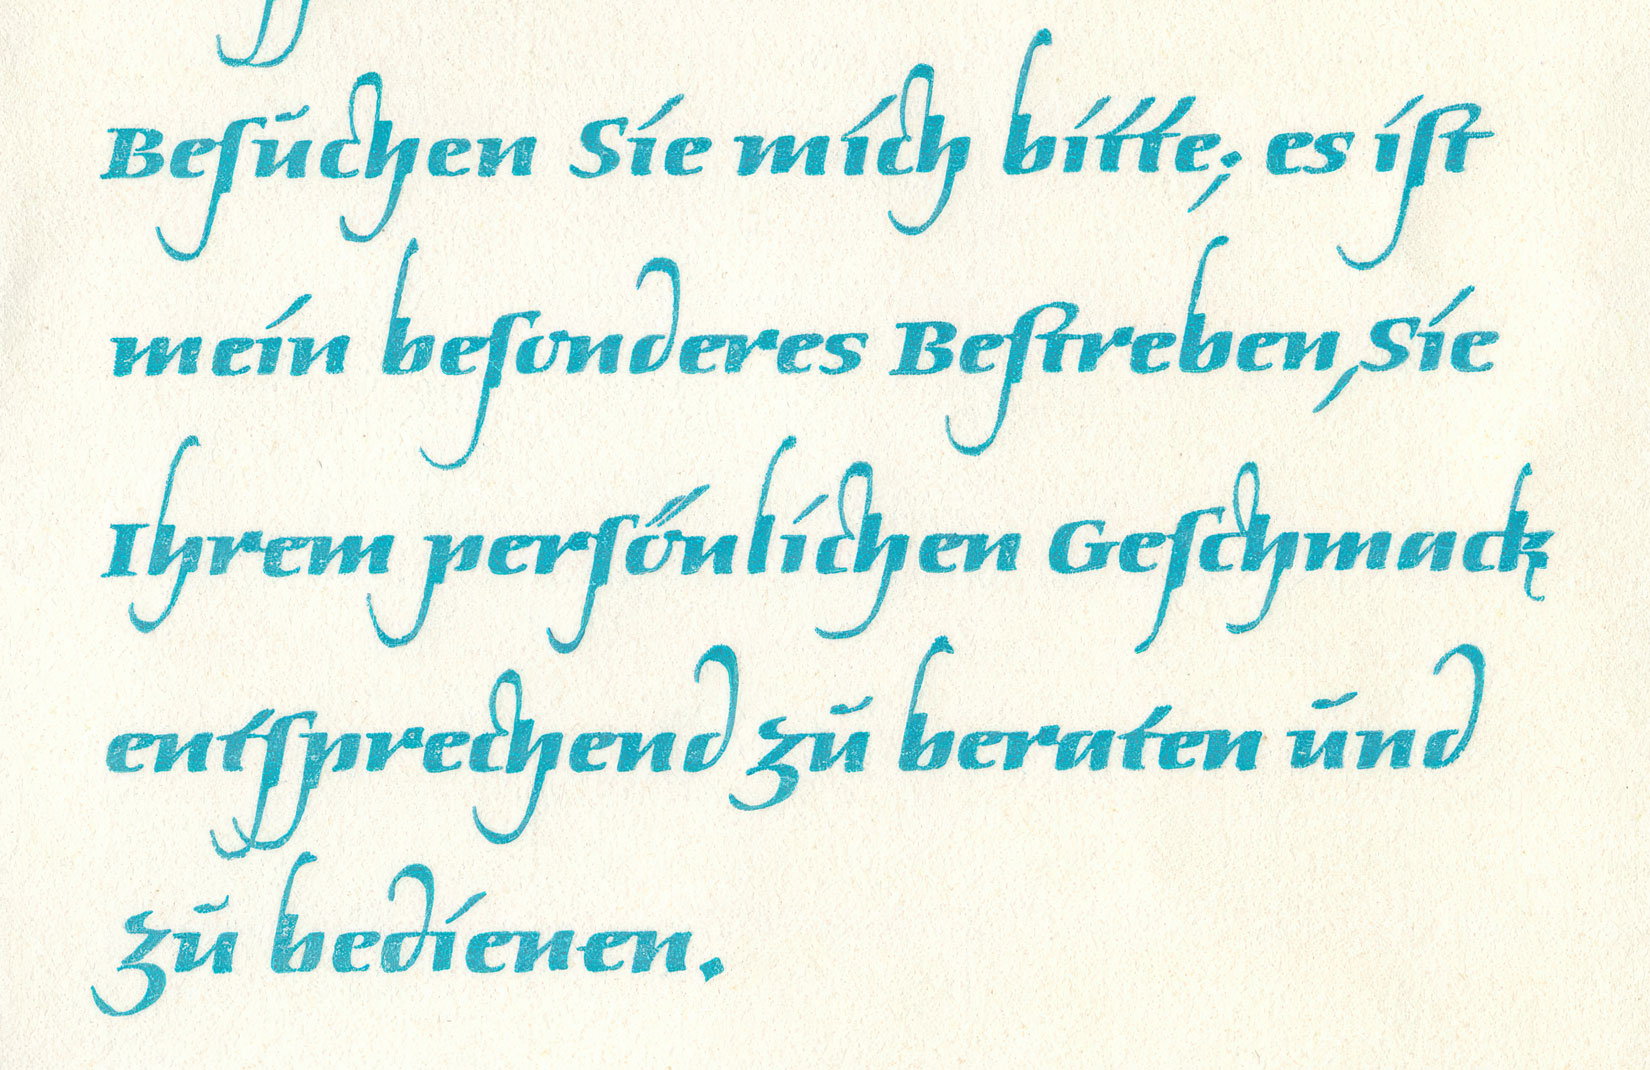 Beſuchen Sie mich bitte; es iſt
mein beſonderes Beſtreben, Sie
Ihrem perſönlichen Geſchmack
entſprechend zu beraten und
zu bedienen.